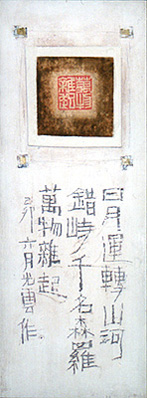 日月運轉山河
錯峙千名森羅
萬物雜起
卯六月光雲作